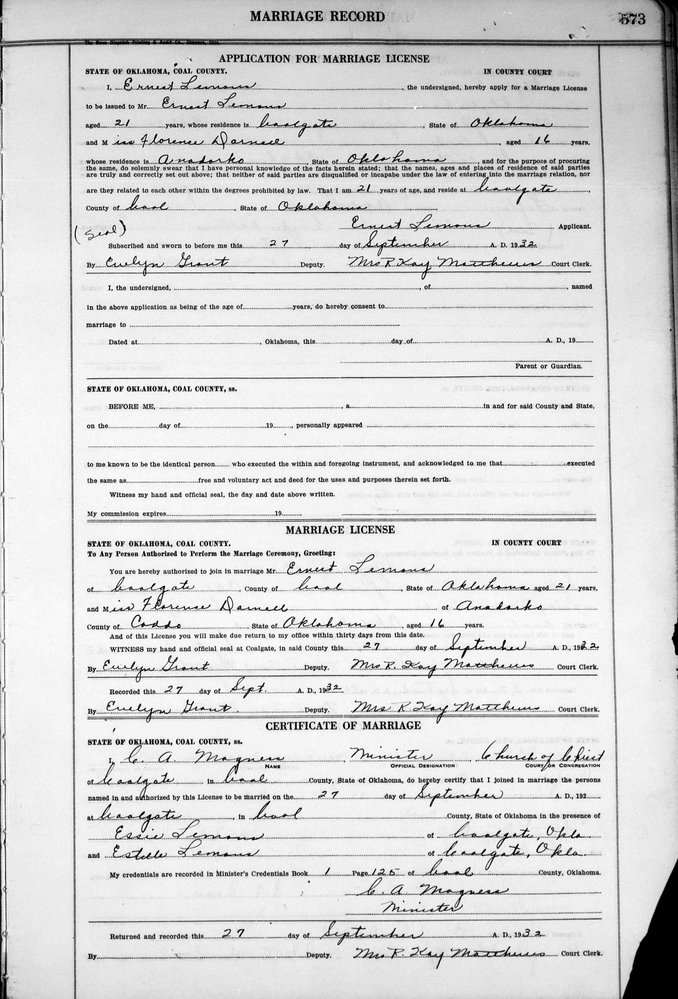 MARRIAGE RECORD
573
APPLICATION FOR MARRIAGE LICENSE
STATE OF OKLAHOMA, COAL COUNTY. IN COUNTY COURT
I, Ernest Lemons, the undersigned, hereby apply for a Marriage License
to be issued to Mr. Ernest Lemons
aged 21 years, whose residence is Coalgate, State of Oklahoma
and Miss Florence Darnell, aged 16 years,
whose residence is Anadarko, State of Oklahoma, and for the purpose of procuring
the same, do solemnly swear that I have personal knowledge of the facts herein stated; that the names, ages and places of residence of said parties
are truly and correctly set out above; that neither of said parties are disqualified or incapable under the law of entering into the marriage relation, nor
are they related to each other within the degrees prohibited by law. That I am 21 years of age, and reside at Coalgate,
County of Coal State of Oklahoma
Ernest Lemons Applicant.
(Seal)
Subscribed and sworn to before me this 27 day of September A. D. 1932
By Evelyn Grant Deputy. Mrs R. Kay Matthews Court Clerk.
I, the undersigned, , of , named
in the above application as being of the age of years, do hereby consent to
marriage to
Dated at , Oklahoma, this day of A. D., 19
Parent or Guardian.
STATE OF OKLAHOMA, COAL COUNTY, ss.
BEFORE ME, , a in and for said County and State,
on the day of 19 , personally appeared
to me known to be the identical person who executed the within and foregoing instrument, and acknowledged to me that executed
the same as free and voluntary act and deed for the uses and purposes therein set forth.
Witness my hand and official seal, the day and date above written.
My commission expires 19
MARRIAGE LICENSE
STATE OF OKLAHOMA, COAL COUNTY. IN COUNTY COURT
To Any Person Authorized to Perform the Marriage Ceremony, Greeting:
You are hereby authorized to join in marriage Mr. Ernest Lemons
of Coalgate, County of Coal, State of Oklahoma aged 21 years,
and Miss Florence Darnell of Anadarko
County of Caddo, State of Oklahoma, aged 16 years.
And of this License you will make due return to my office within thirty days from this date.
WITNESS my hand and official seal at Coalgate, in said County this 27 day of September A. D., 1932
By Evelyn Grant Deputy. Mrs R. Kay Matthews Court Clerk.
Recorded this 27 day of Sept. A. D., 1932
By Evelyn Grant Deputy. Mrs R Kay Matthews Court Clerk.
CERTIFICATE OF MARRIAGE
STATE OF OKLAHOMA, COAL COUNTY, ss.
I, C. A Magness Minister Church of Christ
NAME OFFICIAL DESIGNATION COURT OR CONGREGATION
of Coalgate in Coal County, State of Oklahoma, do hereby certify that I joined in marriage the persons
named in and authorized by this License to be married on the 27 day of September A. D., 192
at Coalgate, in Coal County, State of Oklahoma in the presence of
Essie Lemons of Coalgate, Okla.
and Estelle Lemons of Coalgate, Okla.
My credentials are recorded in Minister's Credentials Book 1 Page 125 of Coal County, Oklahoma.
C. A. Magness
Minister
Returned and recorded this 27 day of September A. D., 1932
By Deputy. Mrs R. Kay Matthews Court Clerk.